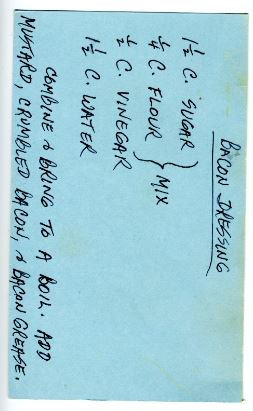 BACON DRESSING
1½ C. SUGAR
¼ C. FLOUR } MIX
½ C. VINEGAR
1½ C. WATER
COMBINE & BRING TO A BOIL. ADD
MUSTARD, CRUMBLED BACON, & BACON GREASE.